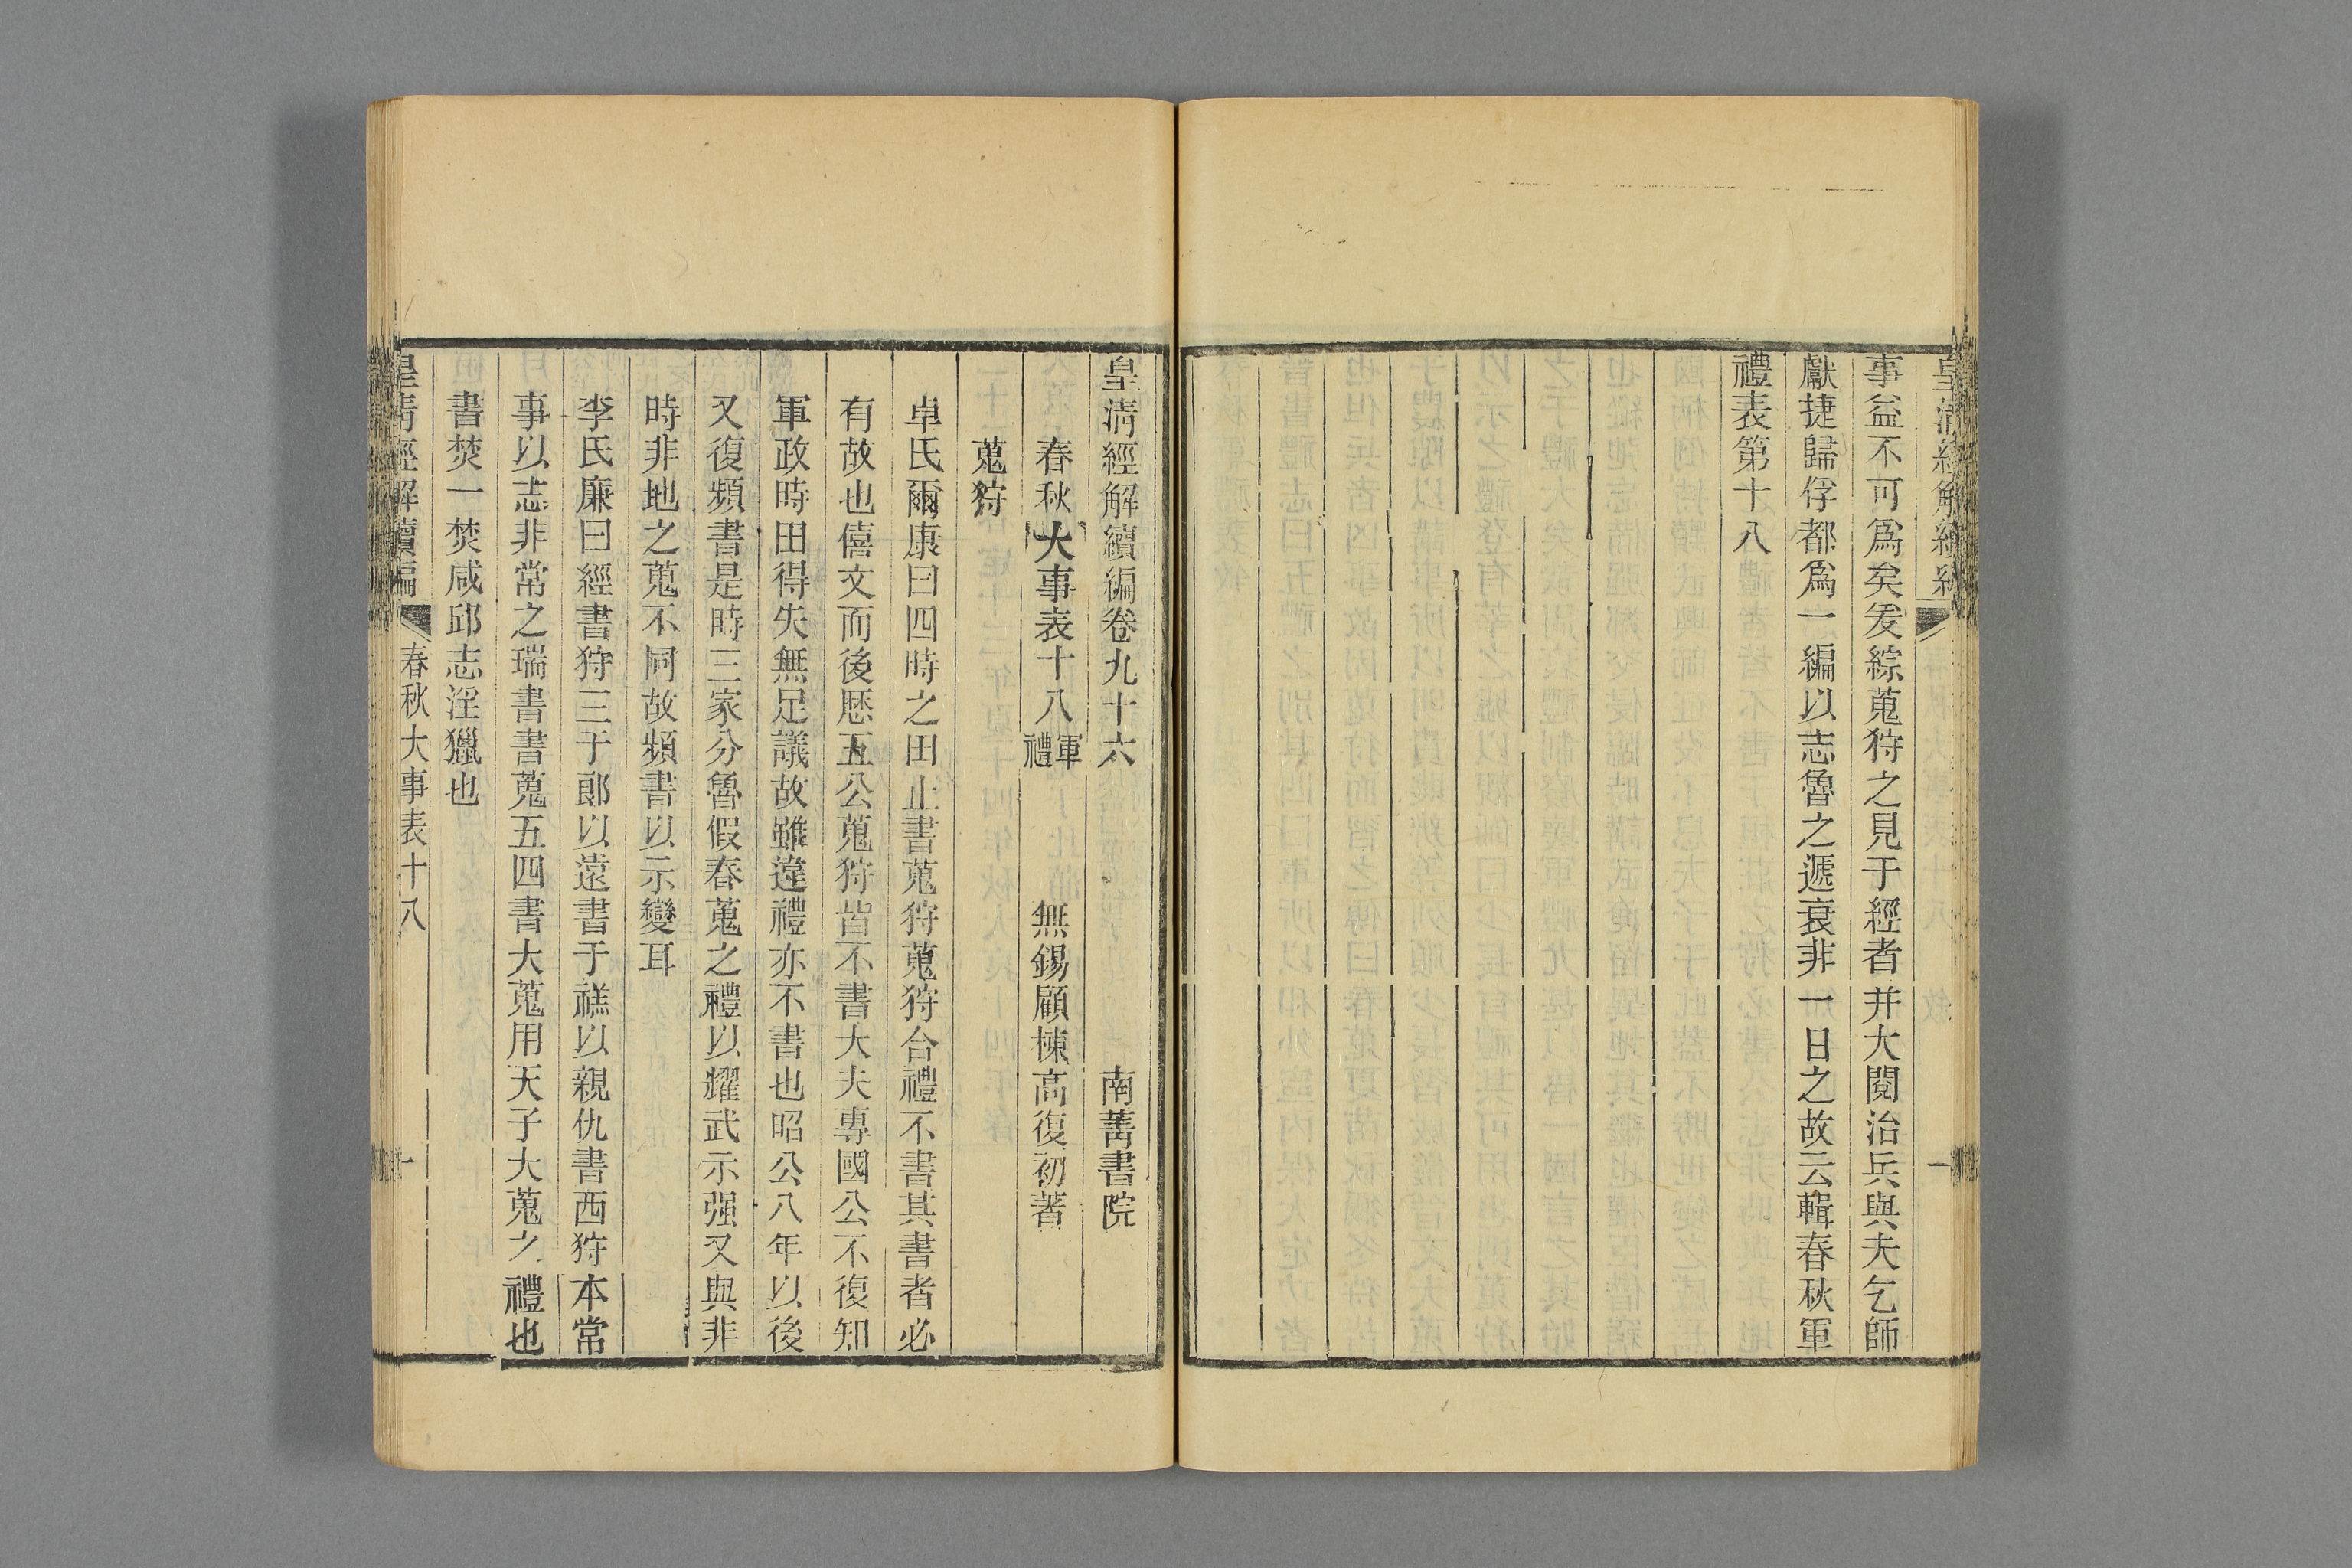 事益不可爲矣爰綜蒐狩之見于經者并大閱治兵與夫乞師
獻捷歸俘都爲一編以志魯之遞衰非一日之故云輯春秋軍
禮表第十八
皇清經解續編卷九十六 南菁書院
春秋大事表十八 軍禮 無錫顧棟高復初著
蒐狩
卓氏爾康曰四時之田止書蒐狩蒐狩合禮不書其書者必
有故也僖文而後歷五公蒐狩皆不書大夫專國公不復知
軍政時田得失無足議故雖違禮亦不書也昭公八年以後
又復頻書是時三家分魯假春蒐之禮以耀武示强又與非
時非地之蒐不同故頻書以示變耳
李氏廉曰經書狩三于郞以遠書于禚以親仇書西狩本常
事以志非常之瑞書書蒐五四書大蒐用天子大蒐之禮也
書焚一焚咸邱志淫獵也
皇清經解續編 春秋大事表十八 一